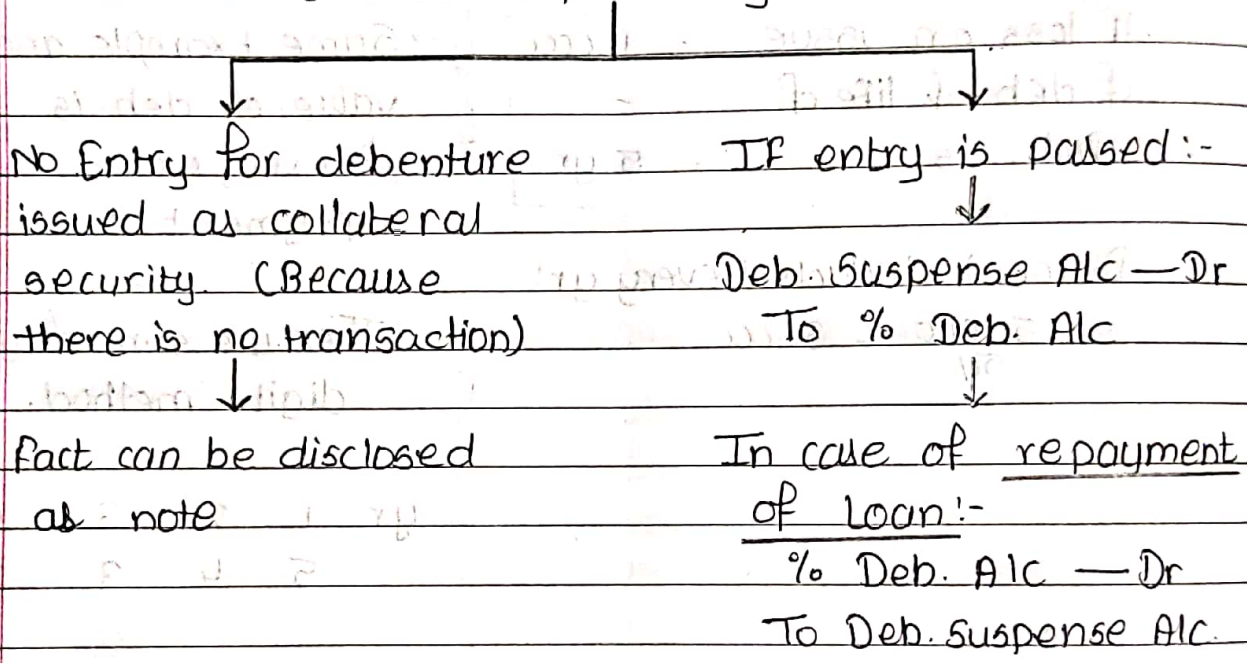 No Entry for debenture
issued as collateral
security. (Because
there is no transaction)
fact can be disclosed
as note
IF entry is passed:-
Deb. Suspense A/c — Dr
To % Deb. A/c
In case of repayment
of Loan:-
% Deb. A/c — Dr
To Deb. Suspense A/c.